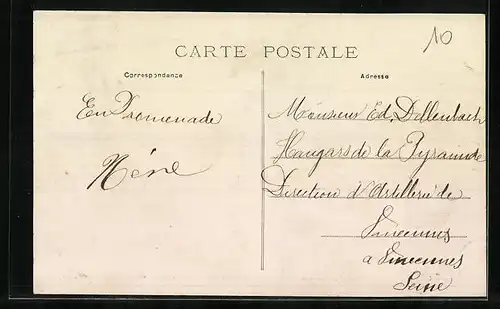 10
CARTE POSTALE
Correspondance
En Promenade
Adresse
Monsieur Ed. Dellenbach
Hangars de la Pyramide
Direction d'Artillerie de
Vincennes
a Vincennes
Seine